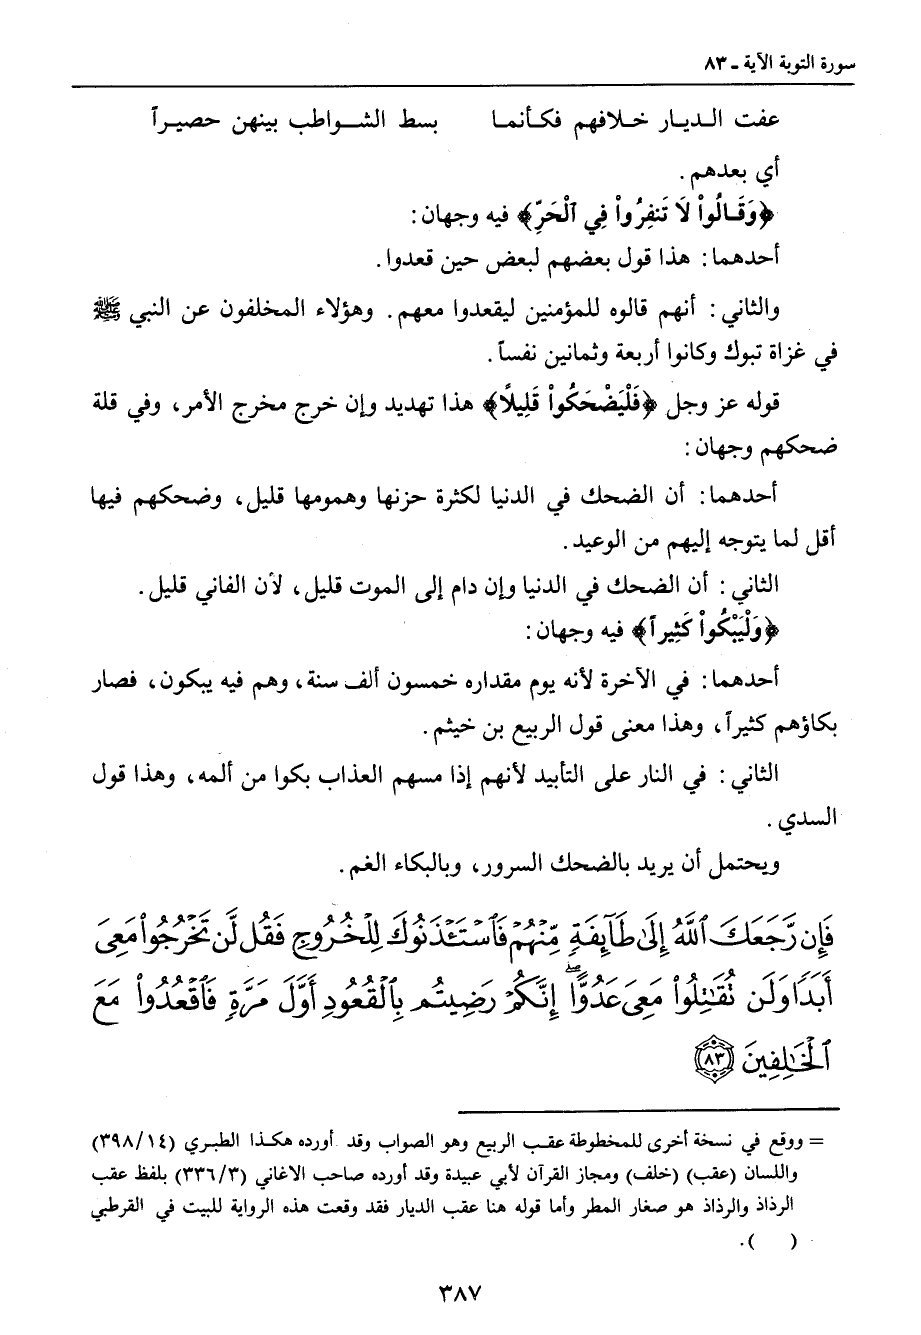 سورة التوبة الآية ـ ٨٣
عفت الـديـار خـلافهم فكـأنمـا بسط الشـواطب بينهن حصيـراً
أي بعدهم .
﴿وَقَـالُواْ لاَ تَنفِرُواْ فِي ٱلْحَرِّ﴾ فيه وجهان :
أحدهما : هذا قول بعضهم لبعض حين قعدوا .
والثاني : أنهم قالوه للمؤمنين ليقعدوا معهم . وهؤلاء المخلفون عن النبي ﷺ
في غزاة تبوك وكانوا أربعة وثمانين نفساً .
قوله عز وجل ﴿فَلْيَضْحَكُواْ قَلِيلًا﴾ هذا تهديد وإن خرج مخرج الأمر، وفي قلة
ضحكهم وجهان :
أحدهما : أن الضحك في الدنيا لكثرة حزنها وهمومها قليل ، وضحكهم فيها
أقل لما يتوجه إليهم من الوعيد .
الثاني : أن الضحك في الدنيا وإن دام إلى الموت قليل ، لأن الفاني قليل .
﴿وَلْيَبْكُواْ كَثِيراً﴾ فيه وجهان :
أحدهما : في الآخرة لأنه يوم مقداره خمسون ألف سنة ، وهم فيه يبكون ، فصار
بكاؤهم كثيراً ، وهذا معنى قول الربيع بن خيثم .
الثاني : في النار على التأبيد لأنهم إذا مسهم العذاب بكوا من ألمه ، وهذا قول
السدي .
ويحتمل أن يريد بالضحك السرور، وبالبكاء الغم .
فَإِن رَّجَعَكَ ٱللَّهُ إِلَىٰ طَآئِفَةٍ مِّنْهُمْ فَٱسْتَـْٔذَنُوكَ لِلْخُرُوجِ فَقُل لَّن تَخْرُجُوا۟ مَعِىَ
أَبَدًا وَلَن تُقَـٰتِلُوا۟ مَعِىَ عَدُوًّا ۖ إِنَّكُمْ رَضِيتُم بِٱلْقُعُودِ أَوَّلَ مَرَّةٍ فَٱقْعُدُوا۟ مَعَ
ٱلْخَـٰلِفِينَ ٨٣
= ووقع في نسخة أخرى للمخطوطة عقب الربيع وهو الصواب وقد أورده هكذا الطبري (٣٩٨/١٤)
واللسان (عقب) (خلف) ومجاز القرآن لأبي عبيدة وقد أورده صاحب الاغاني (٣٣٦/٣) بلفظ عقب
الرذاذ والرذاذ هو صغار المطر وأما قوله هنا عقب الديار فقد وقعت هذه الرواية للبيت في القرطبي
( ) .
٣٨٧